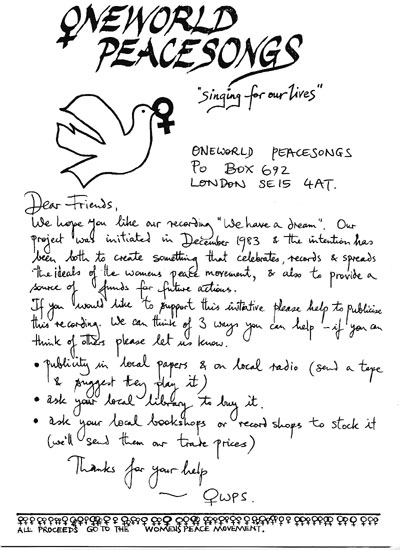 ONEWORLD
PEACESONGS
"singing for our lives"
ONEWORLD PEACESONGS
PO BOX 692
LONDON SE15 4AT.
Dear Friends,
We hope you like our recording "We have a dream". Our
project was initiated in December 1983 & the intention has
been both to create something that celebrates, records & spreads
the ideals of the womens peace movement, & also to provide a
source of funds for future actions.
If you would like to support this initiative please help to publicise
this recording. We can think of 3 ways you can help – if you can
think of others please let us know.
• publicity in local papers & on local radio (send a tape
& suggest they play it)
• ask your local library to buy it.
• ask your local bookshops or record shops to stock it
(we'll send them our trade prices)
Thanks for your help
~ OWPS.
ALL PROCEEDS GO TO THE WOMENS PEACE MOVEMENT.